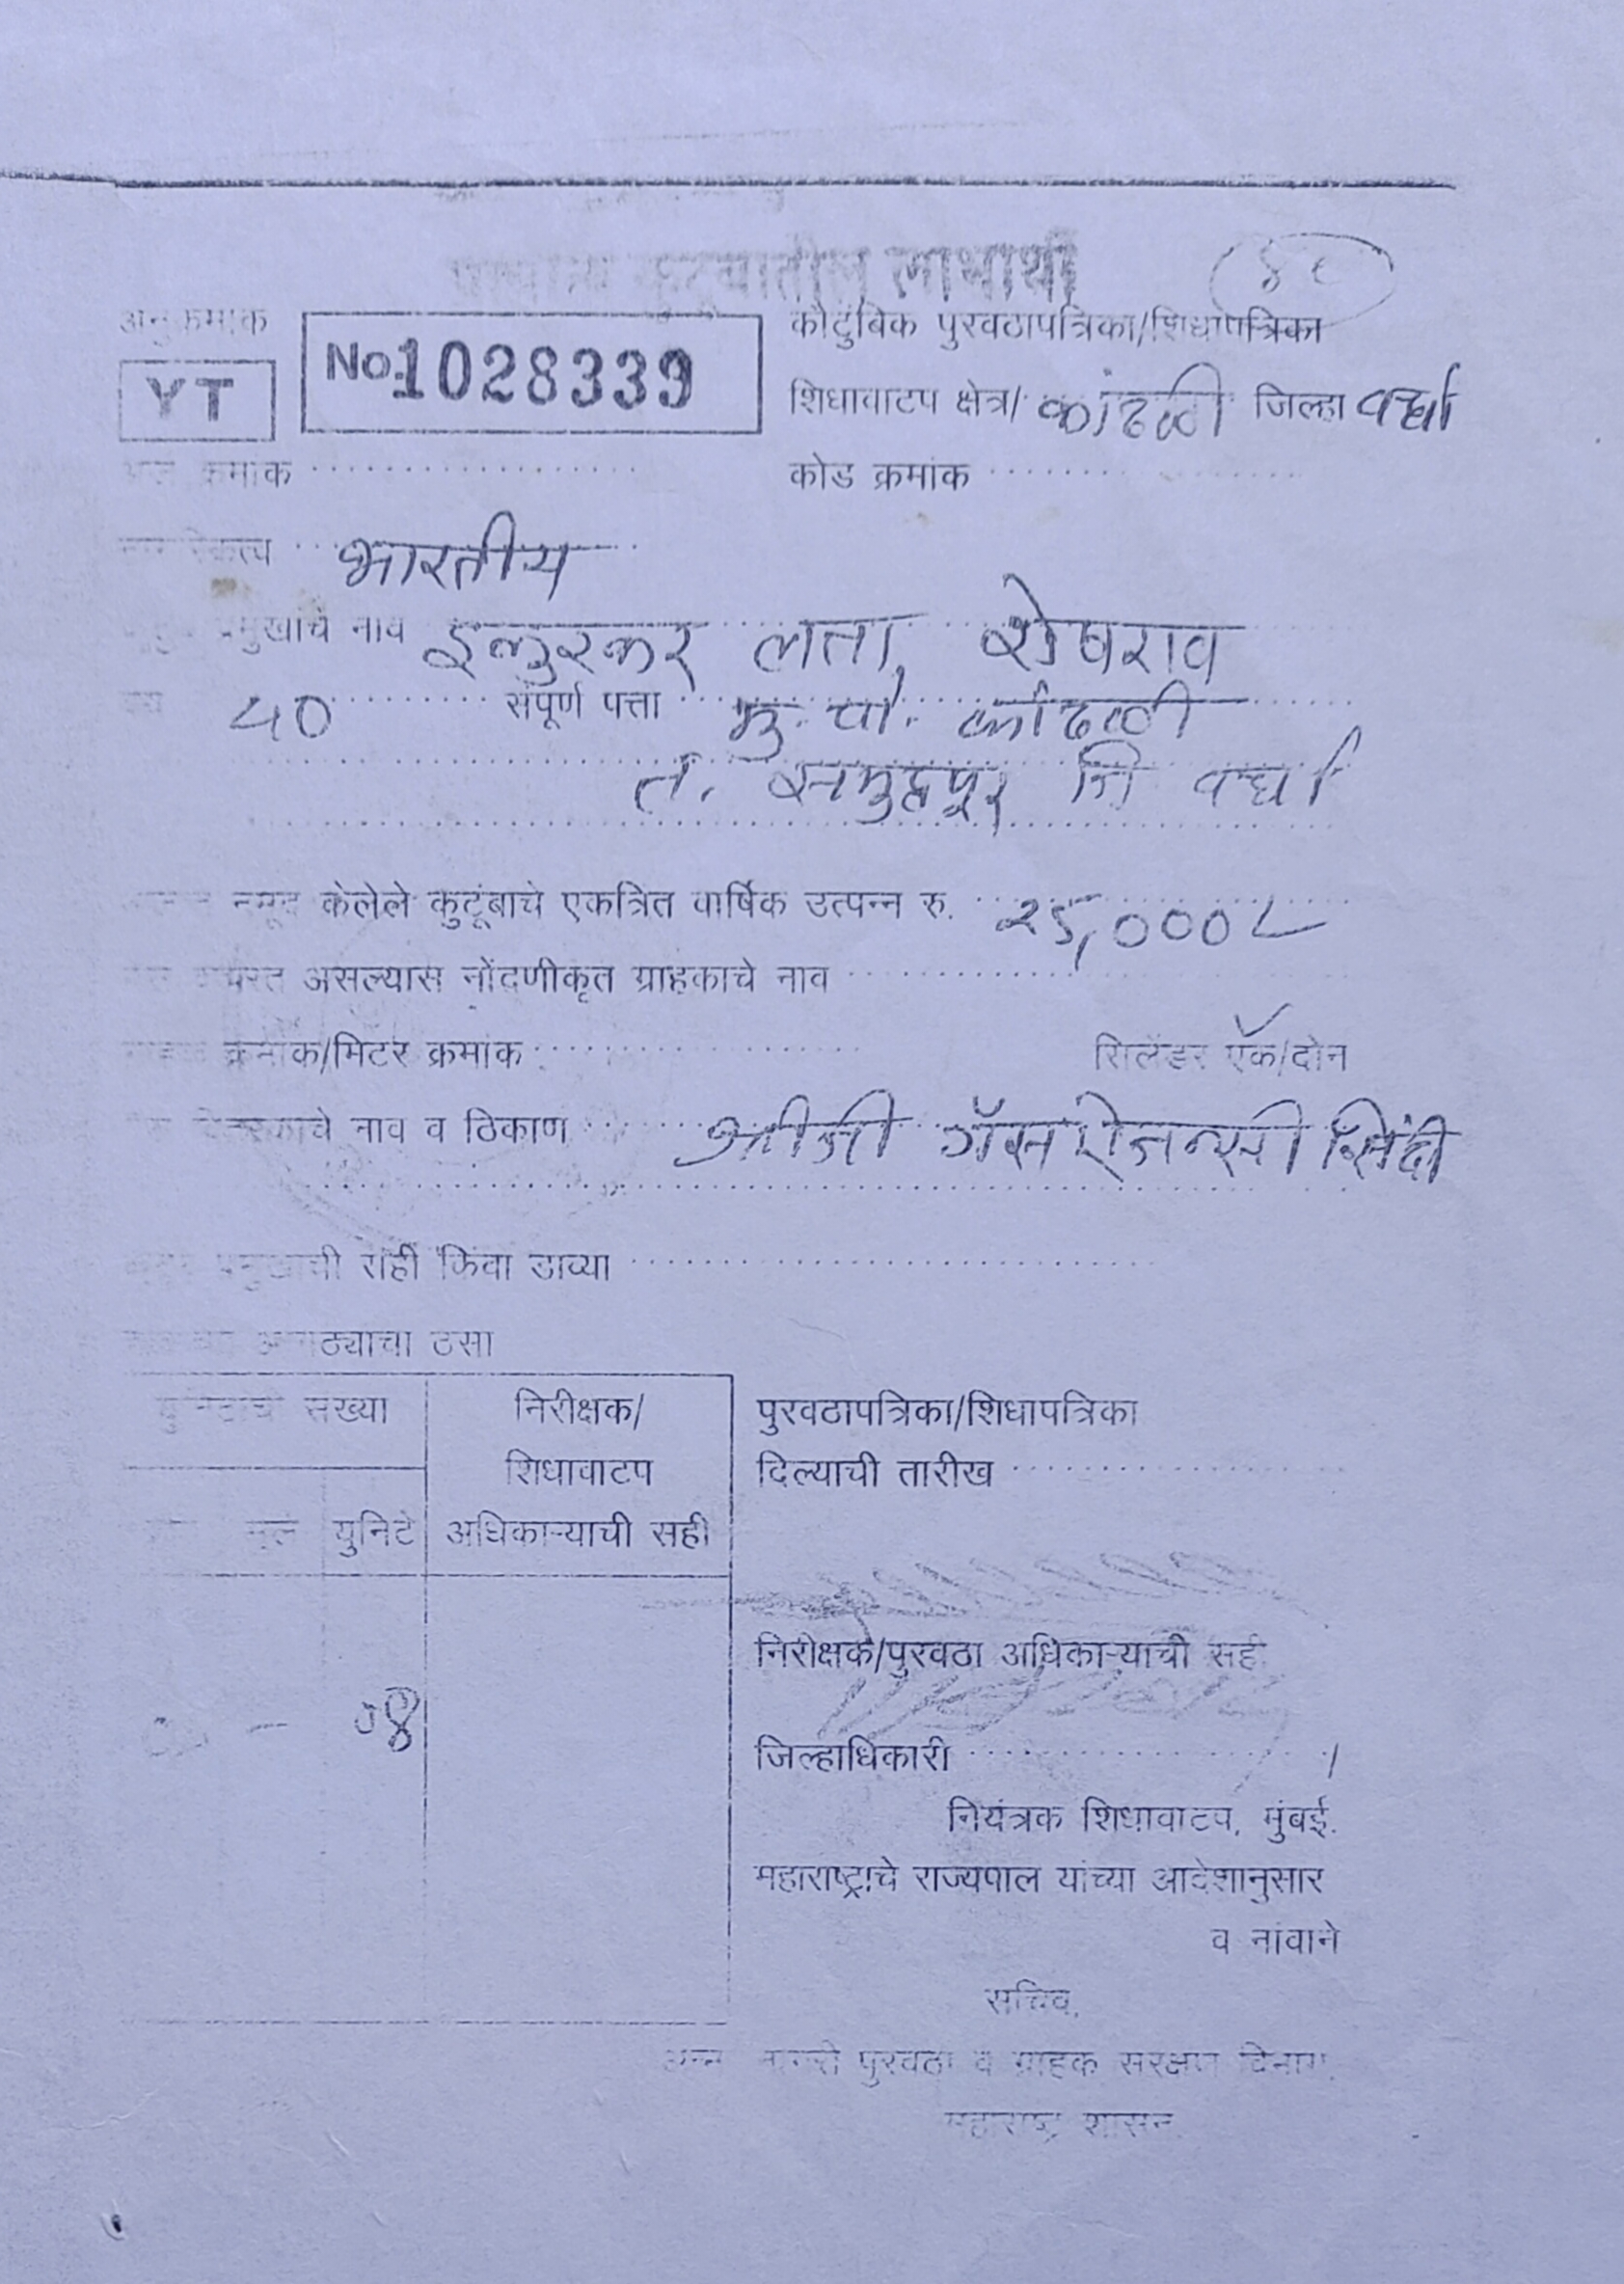 कुटूंबातील लाभार्थी
अनुक्रमांक
YT
No.1028339
कौटुंबिक पुरवठापत्रिका/शिधापत्रिका
शिधावाटप क्षेत्र/ कांढळी जिल्हा वर्धा
क्रमांक
कोड क्रमांक
भारतीय
प्रमुखाचे नाव इलुरकर लता शेषराव
५० संपूर्ण पत्ता मु. पो. कांढळी
त. समुद्रपूर जि वर्धा
नमूद केलेले कुटूंबाचे एकत्रित वार्षिक उत्पन्न रु. २५,०००/-
असल्यास नोंदणीकृत ग्राहकाचे नाव
क्रमांक/मिटर क्रमांक
सिलेंडर एक/दोन
नाव व ठिकाण श्रीजी गॅस ऐजन्सी सिंदी
प्रमुखाची सही किंवा डाव्या
अंगठ्याचा ठसा
युनिटाची संख्या
निरीक्षक/
शिधावाटप
अधिकाऱ्याची सही
मुले युनिटे
०४
पुरवठापत्रिका/शिधापत्रिका
दिल्याची तारीख
निरीक्षक/पुरवठा अधिकाऱ्याची सही
जिल्हाधिकारी
नियंत्रक शिधावाटप, मुंबई.
महाराष्ट्राचे राज्यपाल यांच्या आदेशानुसार
व नांवाने
सचिव,
अन्न नागरी पुरवठा व ग्राहक संरक्षण विभाग,
महाराष्ट्र शासन